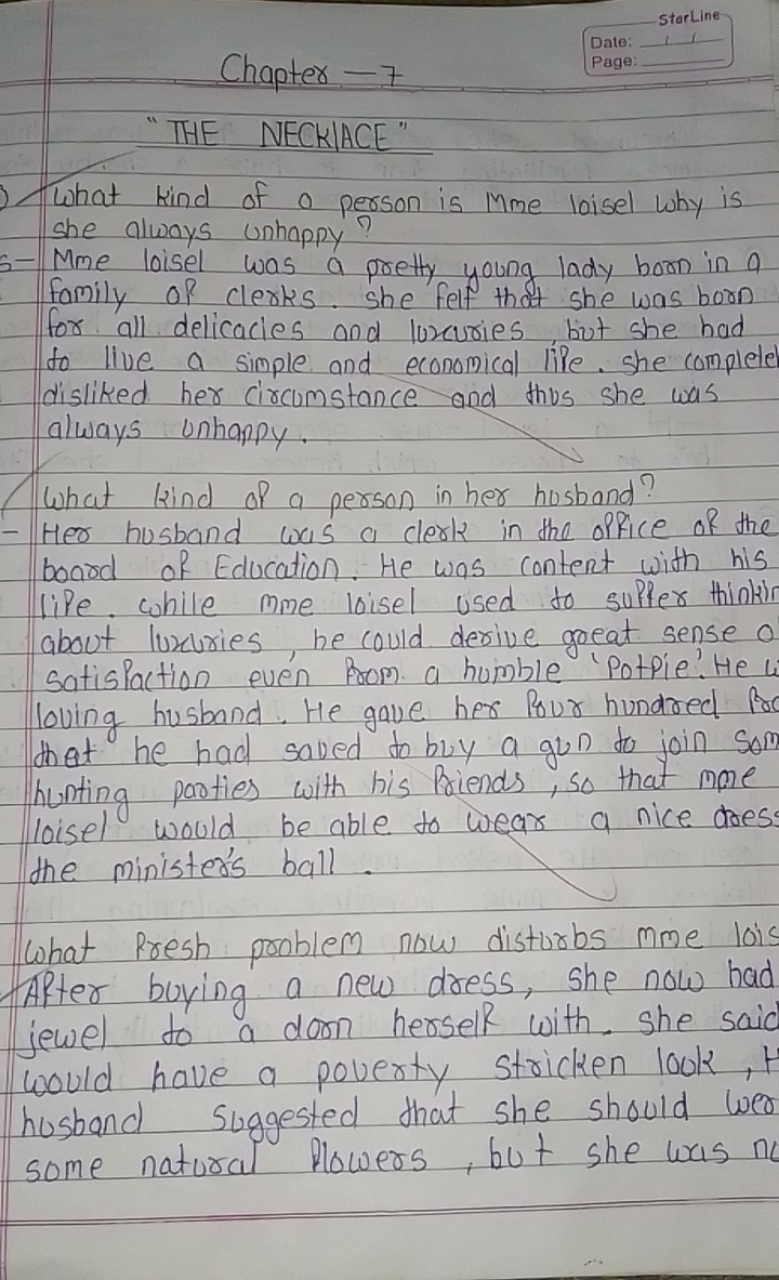 StarLine
Date: / /
Page:
Chapter - 7
"THE NECKLACE"
What kind of a person is Mme loisel why is
she always unhappy?
s- Mme loisel was a pretty young lady born in a
family of clerks. she felt that she was born
for all delicacies and luxuries, but she had
to live a simple and economical life. she complete
disliked her circumstance and thus she was
always unhappy.
What kind of a person in her husband?
- Her husband was a clerk in the office of the
board of Education. He was content with his
life. while mme loisel used to suffer thinkin
about luxuries, he could derive great sense o
satisfaction even from a humble 'Potpie'. He w
loving husband. He gave her four hundred
that he had saved to buy a gun to join som
hunting parties with his friends, so that mme
loisel would be able to wear a nice dress
the minister's ball.
What fresh problem now disturbs mme lois
After buying a new dress, she now had
jewel to a dorn herself with. she said
would have a poverty stricken look, H
husband suggested that she should wea
some natural flowers, but she was no